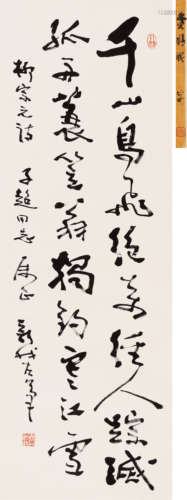 千山鳥飛絕萬徑人踪滅
孤舟蓑笠翁獨釣寒江雪
柳宗元詩 子超同志 屬正 新我左筆